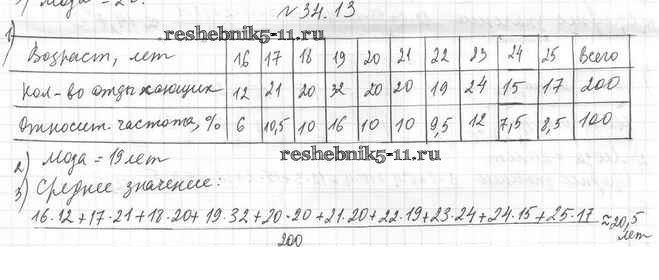 №34.13
reshebnik5-11.ru
1)
Возраст, лет 16 17 18 19 20 21 22 23 24 25 Всего
Кол-во отдыхающих 12 21 20 32 20 20 19 24 15 17 200
Относит. частота, % 6 10,5 10 16 10 10 9,5 12 7,5 8,5 100
2) Мода = 19 лет
reshebnik5-11.ru
3) Среднее значение:
16·12+17·21+18·20+19·32+20·20+21·20+22·19+23·24+24·15+25·17 ≈20,5
200 лет